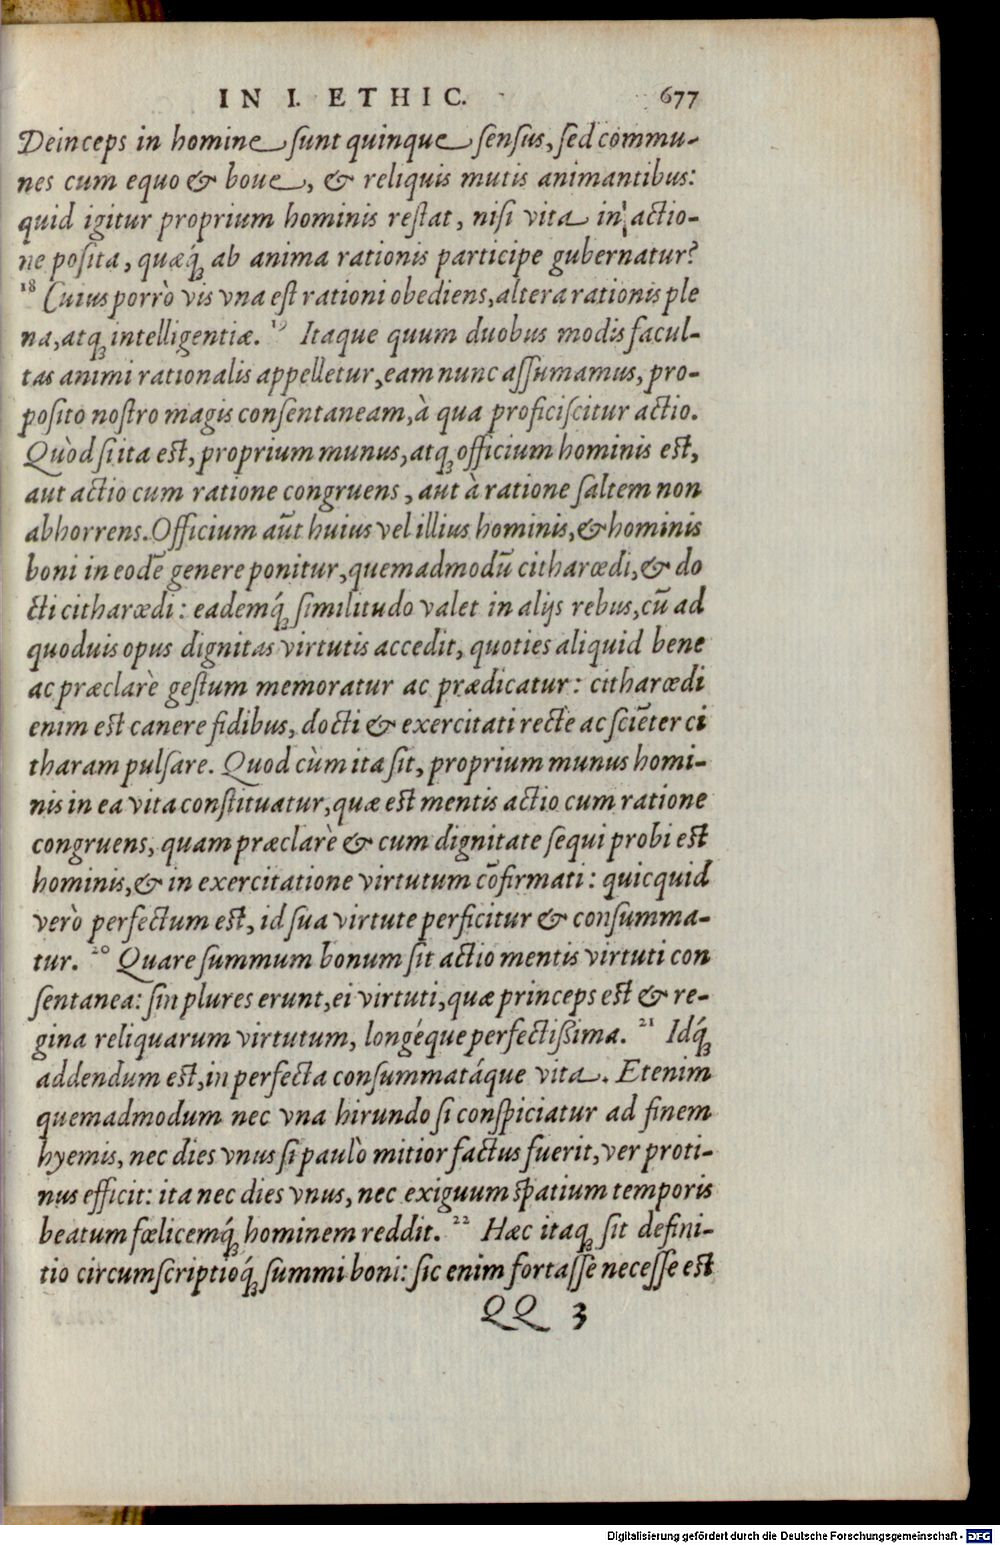 IN I. ETHIC. 677
Deinceps in homine sunt quinque sensus, sed commu-
nes cum equo & boue, & reliquis mutis animantibus:
quid igitur proprium hominis restat, nisi vita in actio-
ne posita, quæq́ꝫ ab anima rationis participe gubernatur?
18 Cuius porrò vis vna est rationi obediens, altera rationis ple
na, atqꝫ intelligentiæ. 19 Itaque quum duobus modis facul-
tas animi rationalis appelletur, eam nunc assumamus, pro-
posito nostro magis consentaneam, à qua proficiscitur actio.
Quòd si ita est, proprium munus, atqꝫ officium hominis est,
aut actio cum ratione congruens, aut à ratione saltem non
abhorrens. Officium aūt huius vel illius hominis, & hominis
boni in eodē genere ponitur, quemadmodū citharœdi, & do
cti citharœdi: eademq́ꝫ similitudo valet in alijs rebus, cū ad
quoduis opus dignitas virtutis accedit, quoties aliquid bene
ac præclarè gestum memoratur ac prædicatur: citharœdi
enim est canere fidibus, docti & exercitati recte ac sciēter ci
tharam pulsare. Quod cùm ita sit, proprium munus homi-
nis in ea vita constituatur, quæ est mentis actio cum ratione
congruens, quam præclarè & cum dignitate sequi probi est
hominis, & in exercitatione virtutum cōfirmati: quicquid
verò perfectum est, id sua virtute perficitur & consumma-
tur. 20 Quare summum bonum sit actio mentis virtuti con
sentanea: sin plures erunt, ei virtuti, quæ princeps est & re-
gina reliquarum virtutum, longéque perfectißima. 21 Idq́ꝫ
addendum est, in perfecta consummatáque vita. Etenim
quemadmodum nec vna hirundo si conspiciatur ad finem
hyemis, nec dies vnus si paulò mitior factus fuerit, ver proti-
nus efficit: ita nec dies vnus, nec exiguum spatium temporis
beatum fœlicemq́ꝫ hominem reddit. 22 Hæc itaqꝫ sit defini-
tio circumscriptioq́ꝫ summi boni: sic enim fortasse necesse est
QQ 3
Digitalisierung gefördert durch die Deutsche Forschungsgemeinschaft - DFG